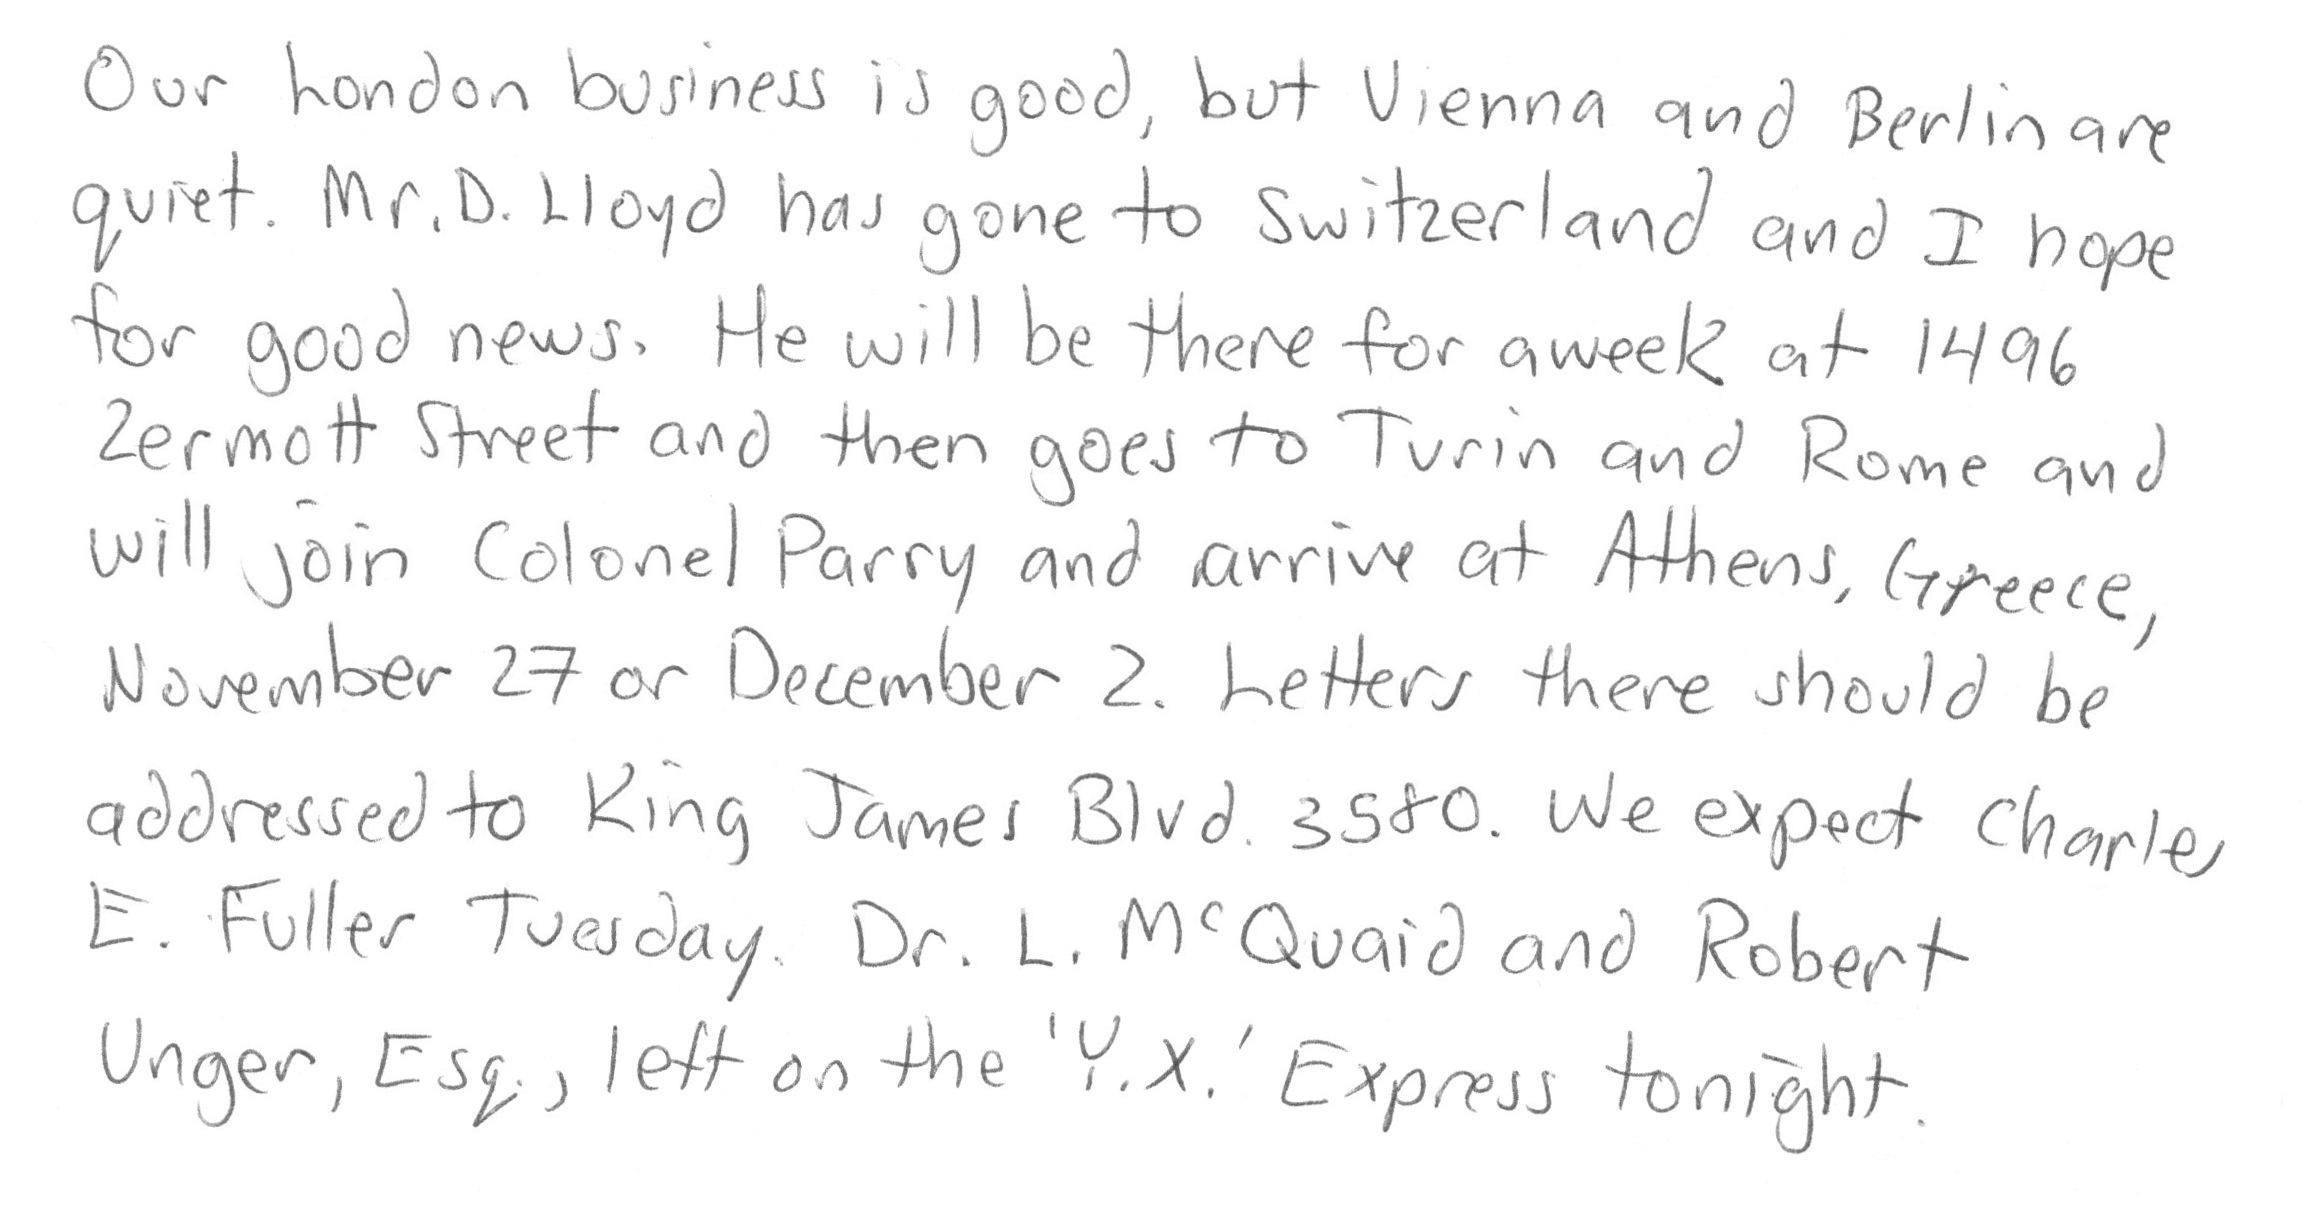 Our London business is good, but Vienna and Berlin are
quiet. Mr. D. Lloyd has gone to Switzerland and I hope
for good news. He will be there for a week at 1496
Zermott Street and then goes to Turin and Rome and
will join Colonel Parry and arrive at Athens, Greece,
November 27 or December 2. Letters there should be
addressed to King James Blvd. 3580. We expect Charles
E. Fuller Tuesday. Dr. L. McQuaid and Robert
Unger, Esq., left on the 'Y.X.' Express tonight.